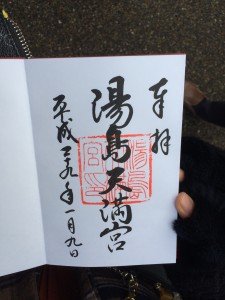 奉拝
湯島天満宮
平成二十九年一月九日